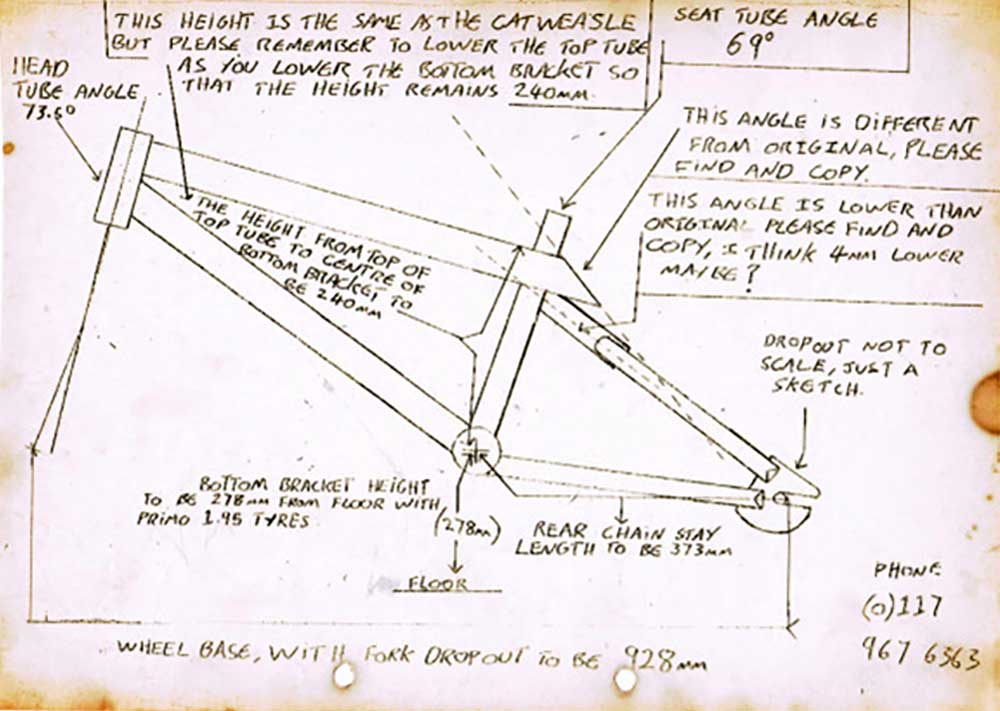 THIS HEIGHT IS THE SAME AS THE CATWEASLE
BUT PLEASE REMEMBER TO LOWER THE TOP TUBE
AS YOU LOWER THE BOTTOM BRACKET SO
THAT THE HEIGHT REMAINS 240MM.
SEAT TUBE ANGLE
69°
HEAD
TUBE ANGLE
73.5°
THIS ANGLE IS DIFFERENT
FROM ORIGINAL, PLEASE
FIND AND COPY.
THIS ANGLE IS LOWER THAN
ORIGINAL PLEASE FIND AND
COPY, I THINK 4MM LOWER
MAYBE?
THE HEIGHT FROM TOP OF
TOP TUBE TO CENTRE OF
BOTTOM BRACKET TO
BE 240MM
DROPOUT NOT TO
SCALE, JUST A
SKETCH.
BOTTOM BRACKET HEIGHT
TO BE 278MM FROM FLOOR WITH
PRIMO 1.95 TYRES
(278MM)
FLOOR
REAR CHAIN STAY
LENGTH TO BE 373MM
PHONE
(0)117
967 6563
WHEEL BASE, WITH FORK DROPOUT TO BE 928MM